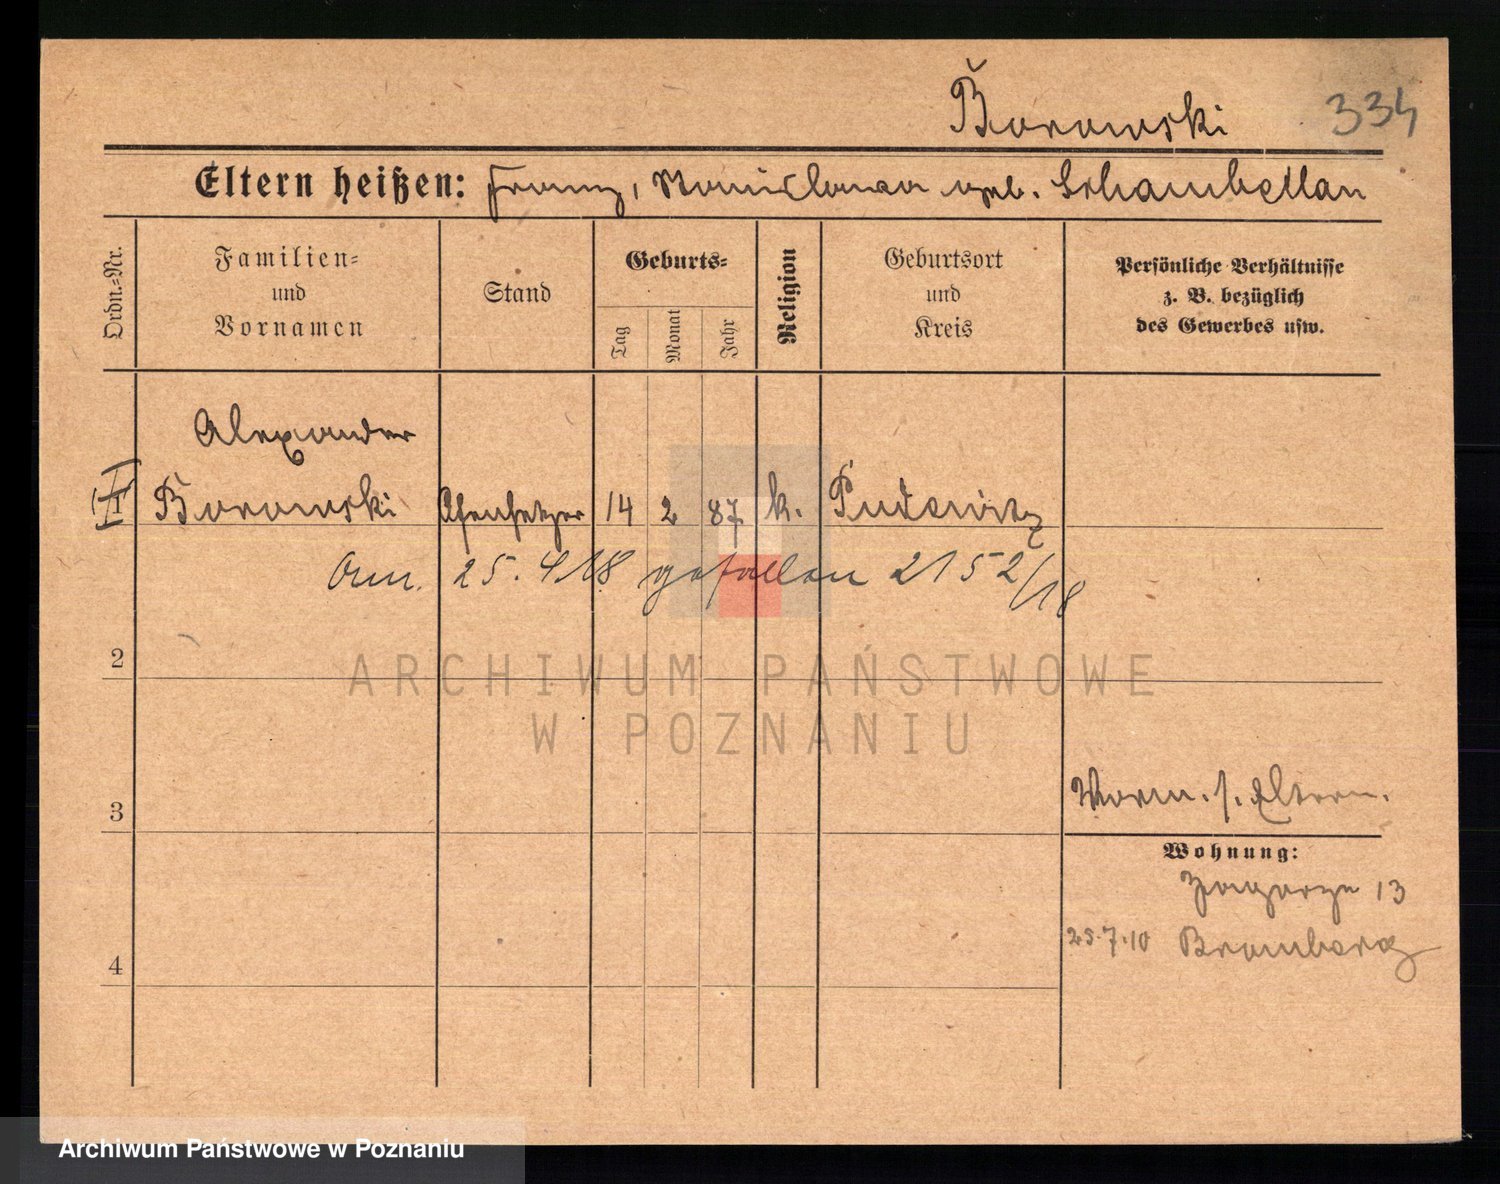 Borowski 334
Eltern heißen: Franz, Stanislawa geb. Schambellan
Ordn.-Nr.
Familien-
und
Vornamen
Stand
Geburts-
Tag
Monat
Jahr
Religion
Geburtsort
und
Kreis
Persönliche Verhältnisse
z. B. bezüglich
des Gewerbes usw.
Alexander
Borowski Ofensetzer 14 2 87 k. Pudewitz
Am. 25.4.18 gefallen 2152/18
2
ARCHIWUM PAŃSTWOWE
W POZNANIU
3
Vorm. s. Eltern.
Wohnung:
Zagorze 13
25.7.10 Bromberg
4
Archiwum Państwowe w Poznaniu